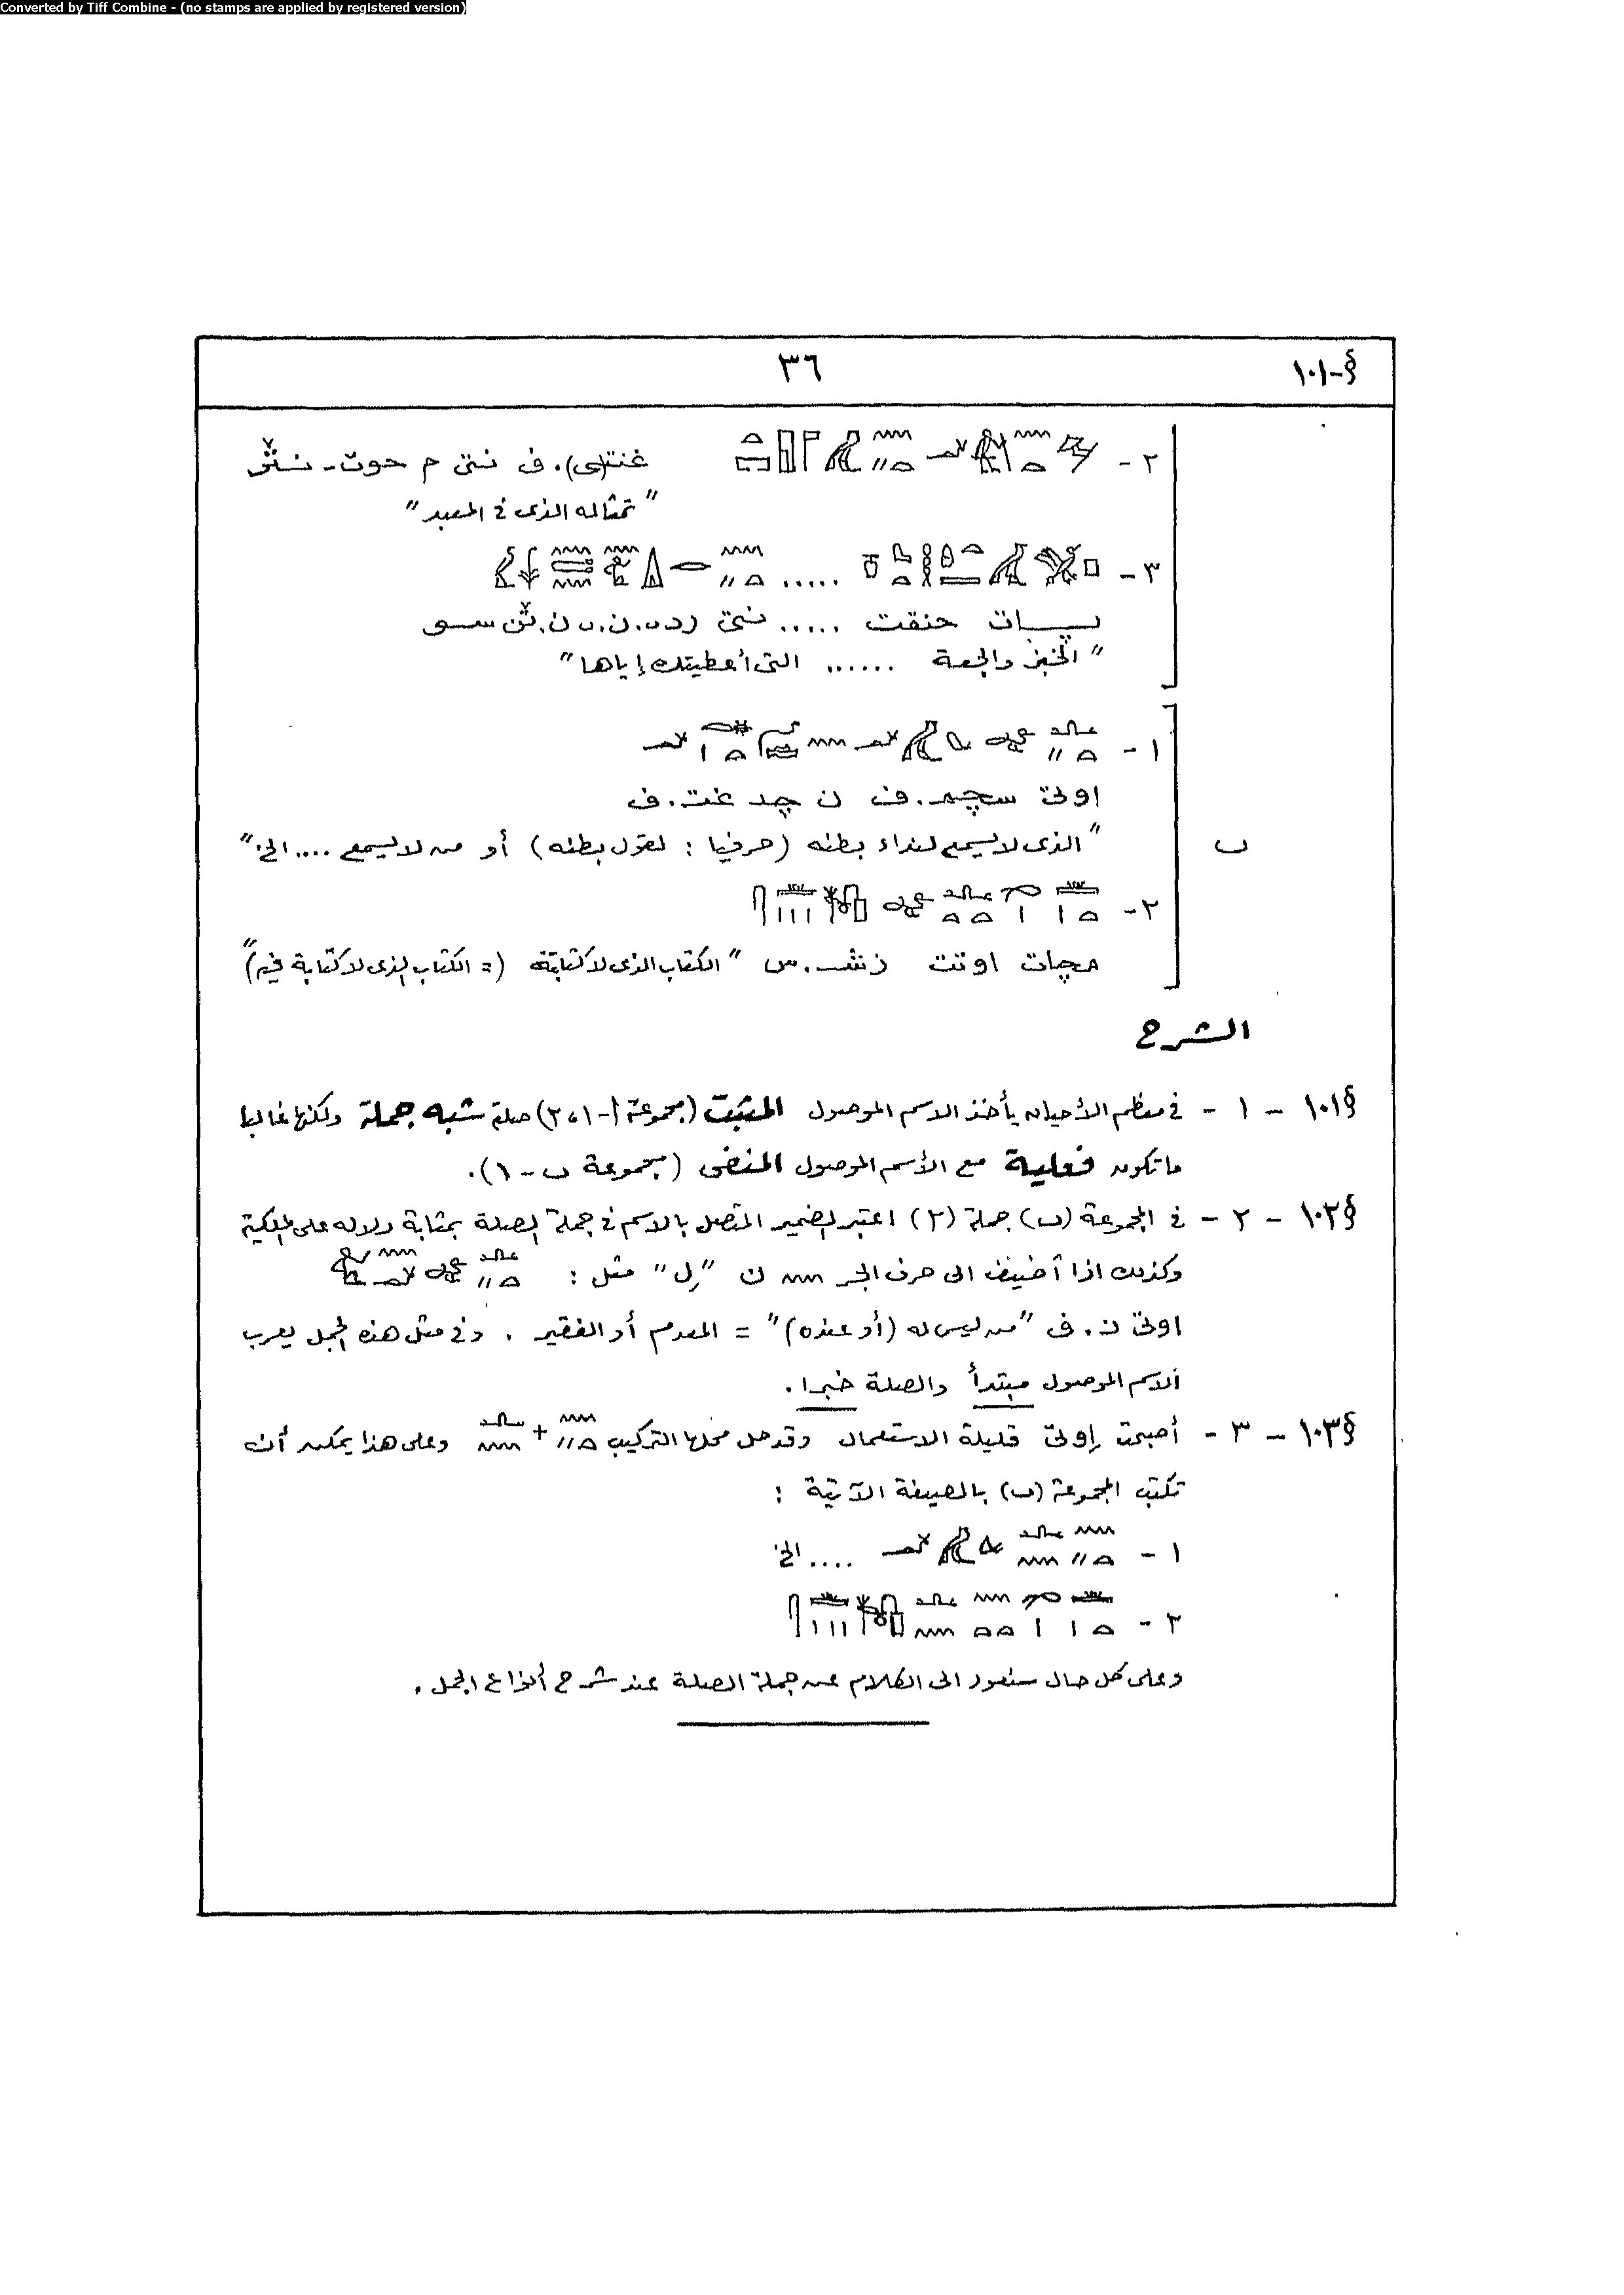 Converted by Tiff Combine - (no stamps are applied by registered version)
§-١٠١
٣٦
٢ -
غنت(ى).ف نتى م حوت - نثر
"تمثاله الذى فى المعبد"
٣ - .....
حنقت ..... نتى رد.ن.ى ن.ثن سو
"الخبز والجعة ...... التى أعطيتك إياها"
١ -
اوتى سچم.ف ن چد غت.ف
ب
"الذى لا يسمع لنداء بطنه (حرفيا : لقول بطنه) أو من لا يسمع .... الخ"
٢ -
مچات اوتت زش.س "الكتاب الذى لا كتابته (= الكتاب الذى لا كتابة فيه)"
الشرح
§١٠١ - ١ - فى معظم الأحيان يأخذ الاسم الموصول المثبت (مجموعة أ - ١، ٢) صلة شبه جملة ولكنها غالبا
ما تكون فعلية مع الأسم الموصول المنفى (مجموعة ب - ١).
§١٠٢ - ٢ - فى المجموعة (ب) جملة (٢) اعتبر الضمير المتصل بالاسم فى جملة الصلة بمثابة دلاله على الملكية
وكذلك اذا أضيف الى حرف الجر ن "لِ" مثل :
اوتى ن.ف "من ليس له (أو عنده)" = المعدم أو الفقير . وفى مثل هذه الجمل يعرب
الاسم الموصول مبتدأ والصلة خبرا .
§١٠٣ - ٣ - أصبحت إوتى قليلة الاستعمال وقد حل محلها التركيب + وعلى هذا يمكن أن
تكتب المجموعة (ب) بالصيغة الآتية :
١ - .... الخ
٢ -
وعلى كل حال سنعود الى الكلام عن جملة الصلة عند شرح أنواع الجمل .